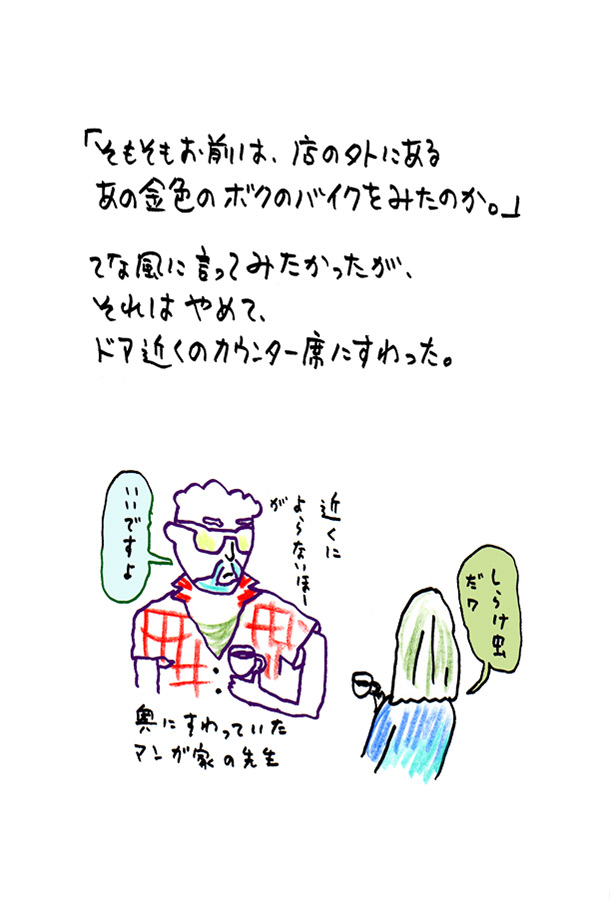 「そもそもお前は、店の外にある
あの金色のボクのバイクをみたのか。」
てな風に言ってみたかったが、
それはやめて、
ドア近くのカウンター席にすわった。
いいですよ
近くに
よらないほー
が
しらけ虫
だワ
奥にすわっていた
マンガ家の先生